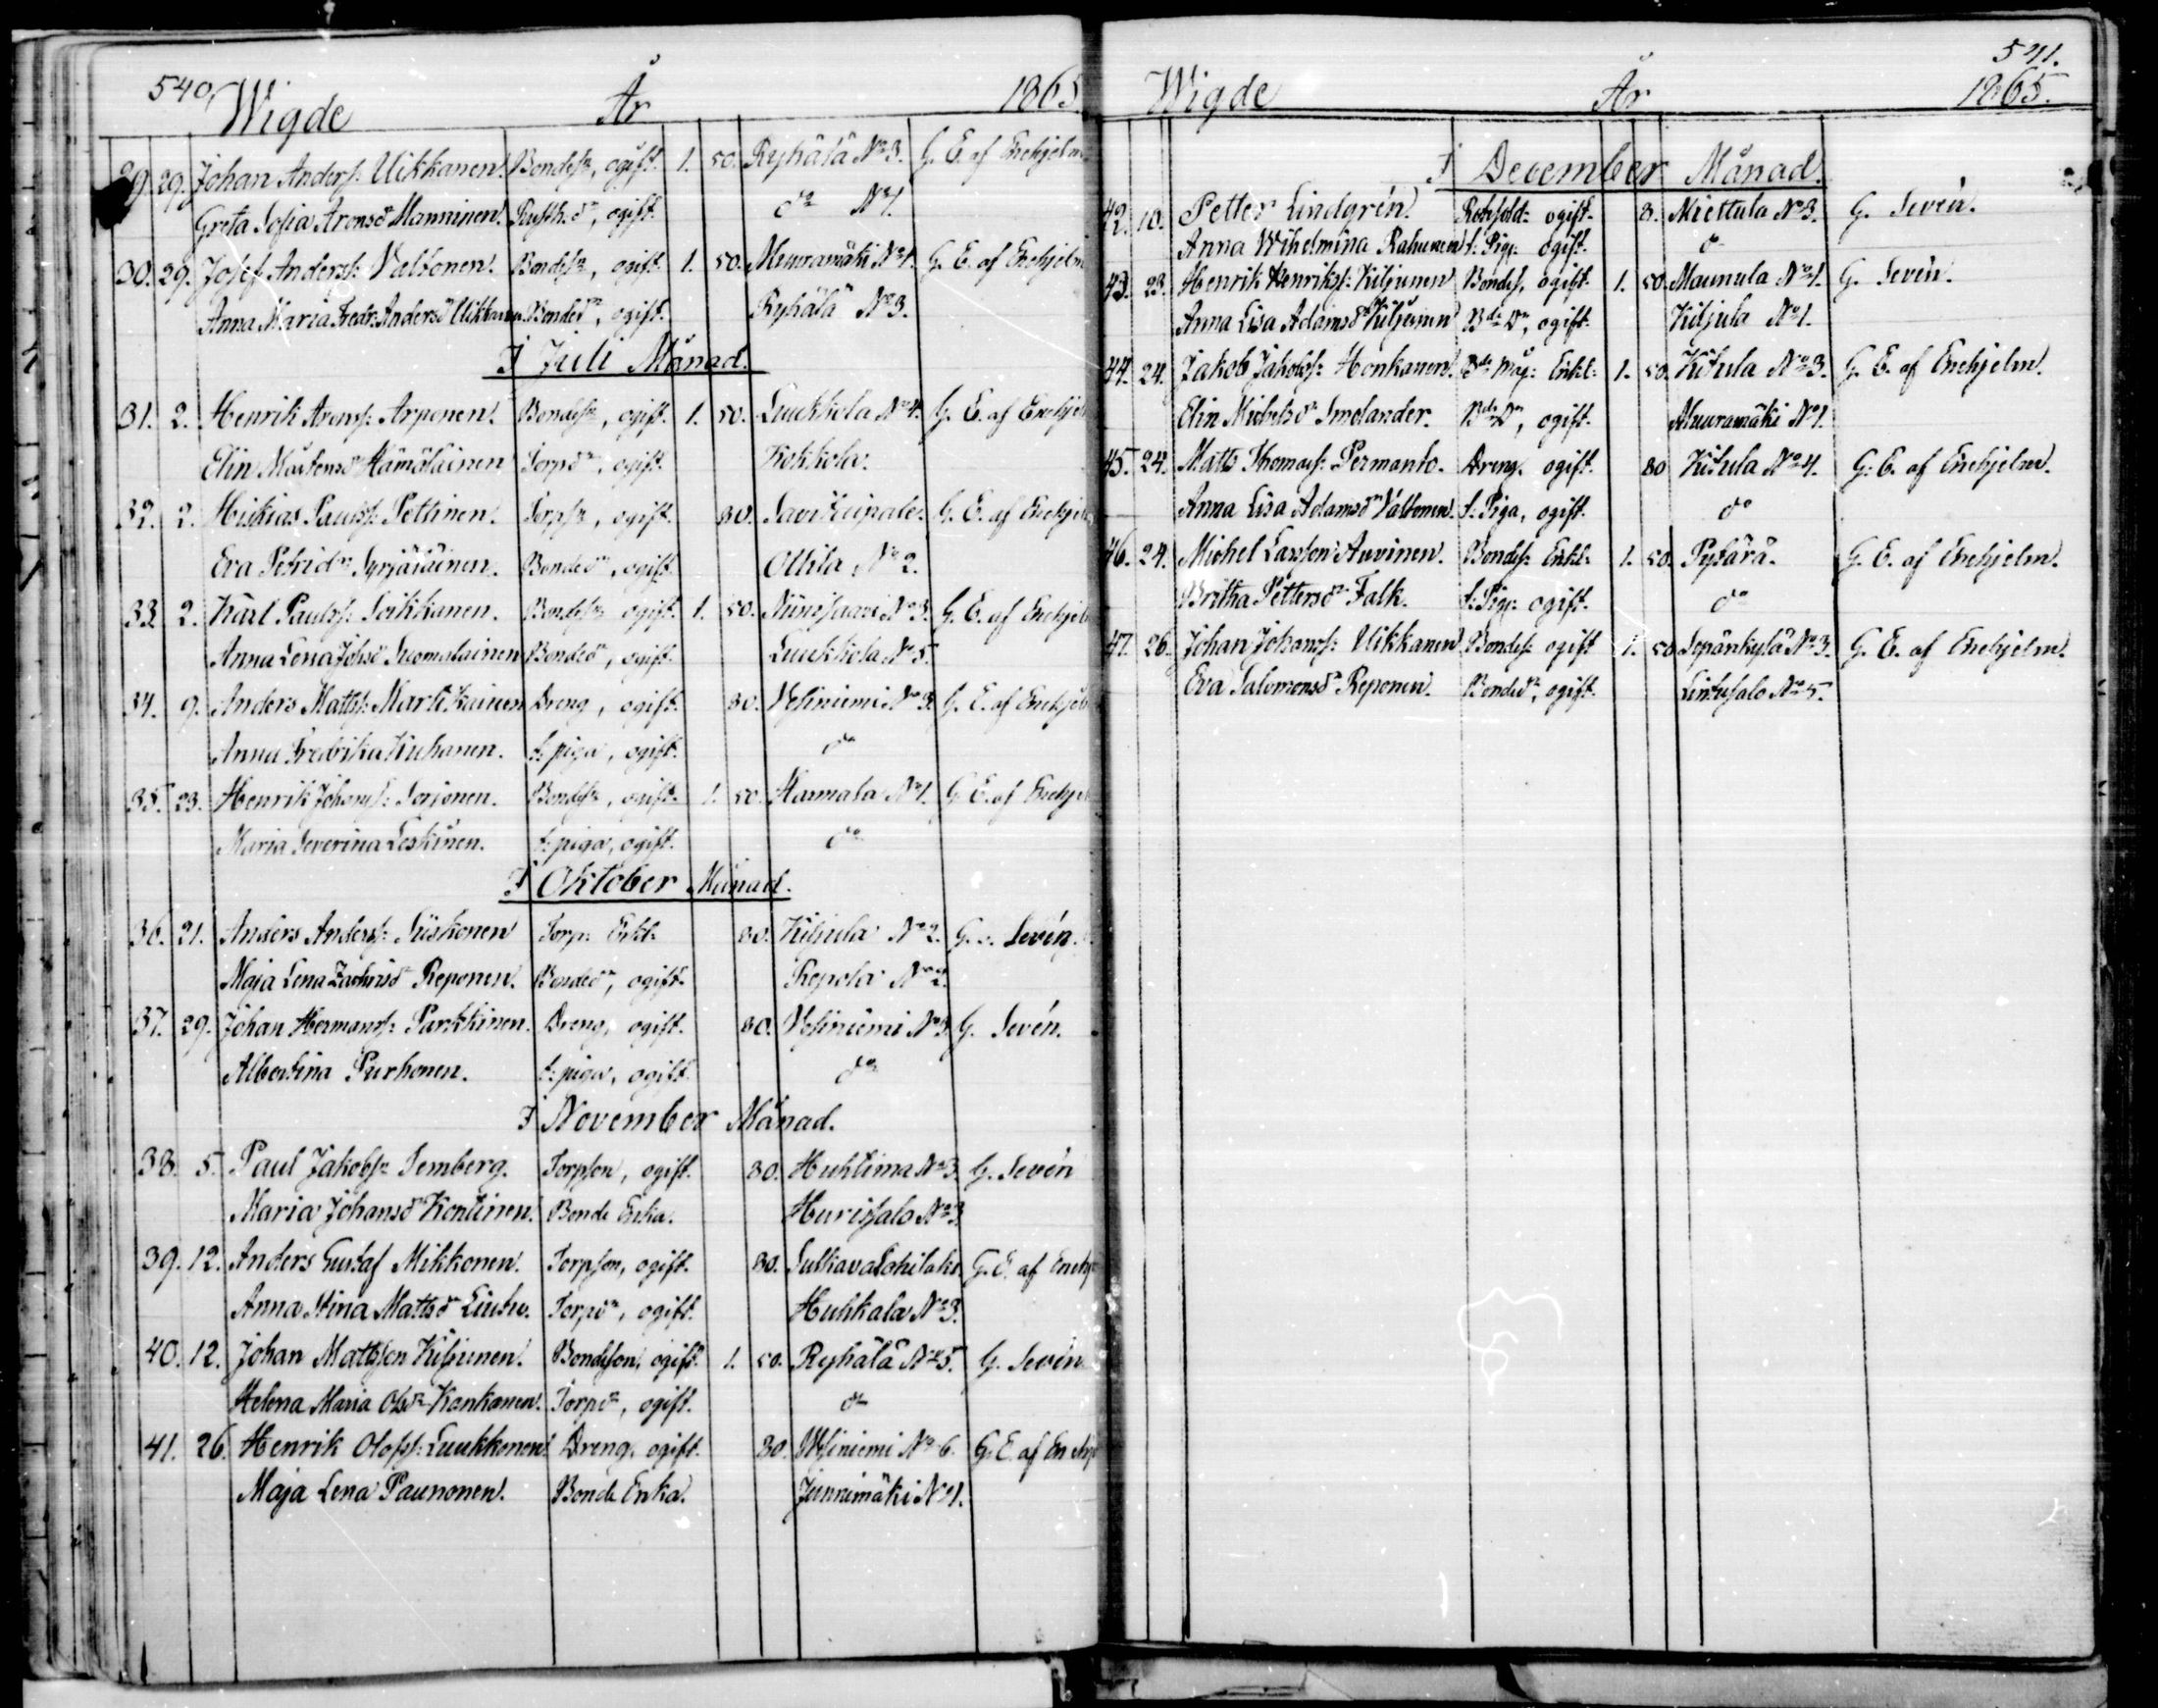 540. Wigde År 1865.
29. 29. Johan Anders: Uikkanen. Bondeson, ogift. 1. 50. Ryhälä No 3. G. E. af Enehjelm
Greta Sofia Aronsdr Manninen. Rusth. dr, ogift. do No 1.
30. 29. Josef Anders: Valtonen. Bondeson, ogift. 1. 50. Muuramäki No 1. G. E. af Enehjelm
Anna Maria Fredr. Andersdr Uikkanen Bondedr, ogift. Ryhälä No 3.
I Juli Månad.
31. 2. Henrik Arons: Arponen. Bondeson, ogift. 1. 50. Luukkola No 4. G. E. af Enehjel
Elin Mårtensdr Hämäläinen Torpdr, ogift. Kokkola.
32. 2. Hiskias Pauls: Pettinen. Torpson, ogift. 80. Savitaipale. G. E. af Enehjel
Eva Petridr Syrjäläinen. Bondedr, ogift. Ollila No 2.
33. 2. Karl Pauls: Seikkanen. Bondeson ogift. 1. 50. Niinisaari No 3. G. E. af Enehjel
Anna Lena Johsdr Suomalainen Bondedr, ogift. Luukkola No 5.
34. 9. Anders Matts: Martikainen Dreng, ogift. 80. Vesiniemi No 3. G. E. af Enehjel
Anna Fredrika Kuhanen. t: piga, ogift. do
35. 23. Henrik Johans: Sorjonen. Bondeson, ogift. 1. 50. Hamala No 1. G. E. af Enehj
Maria Severina Leskinen. t: piga, ogift. do
I Oktober Månad.
36. 21. Anders Anders: Siiskonen Torp: Enkl. 80. Kiljula No 2. G. Sevén.
Maja Lena Zachrisdr Reponen. Bondedr, ogift. Repola No 2.
37. 29. Johan Hermans: Parkkinen. Dreng, ogift. 80. Vesiniemi No 3. G. Sevén.
Albertina Purhonen. t: piga, ogift. do
I November Månad.
38. 5. Paul Jakobs: Temberg. Torpson, ogift. 80. Huhtima No 3. G. Sevén
Maria Johansdr Kontinen. Bonde Enka. Hurissalo No 3.
39. 12. Anders Gustaf Mikkonen. Torpson, ogift. 80. Sulkava Lohilaks. G. E. af Enehj
Anna Stina Mattsdr Liuhu. Torpdr, ogift. Huhkala No 3.
40. 12. Johan Mattsson Kiljunen. Bondeson, ogift. 1. 50. Ryhälä No 5. G. Sevén
Helena Maria Olsdr Kankanen. Torpdr, ogift. do
41. 26. Henrik Olofs: Luukkonen. Dreng, ogift. 80. Vesiniemi No 6. G. E. af Enehje
Maja Lena Paunonen. Bonde Enka. Junnimäki No 1.
541.
Wigde År 1865.
I December Månad.
42. 10. Petter Lindgrén. ogift. 8. Miettula No 3. G. Sevén.
Anna Wihelmina Rahunen t: Pig: ogift. do
43. 23. Henrik Henriks: Kiljunen Bondes, ogift. 1. 50. Maunula No 1. G. Sevén.
Anna Lisa Adamsdr Kiljunen Bde Dr, ogift. Kiljula No 1.
44. 24. Jakob Jakobs: Honkanen. Bde Måg: Enkl: 1. 50. Kitula No 3. G. E. af Enehjelm.
Elin Michelsdr Smolander. Bde Dr, ogift. Muuramäki No 1.
45. 24. Matts Thomas: Permanto. Dreng. ogift. 80 Kitula No 4. G. E. af Enehjelm.
Anna Lisa Adamsdr Valtonen. t: Piga, ogift. do
46. 24. Michel Larsson Auvinen. Bondes: Enkl: 1. 50. Pyhärä. G. E. af Enehjelm.
Britha Pettersdr Falk. t: Pig: ogift. do
47. 26. Johan Johans: Uikkanen Bondes: ogift 1. 50. Sepänkylä No 3. G. E. af Enehjelm.
Eva Salomonsdr Reponen. Bondedr, ogift. Lintusalo No 5.